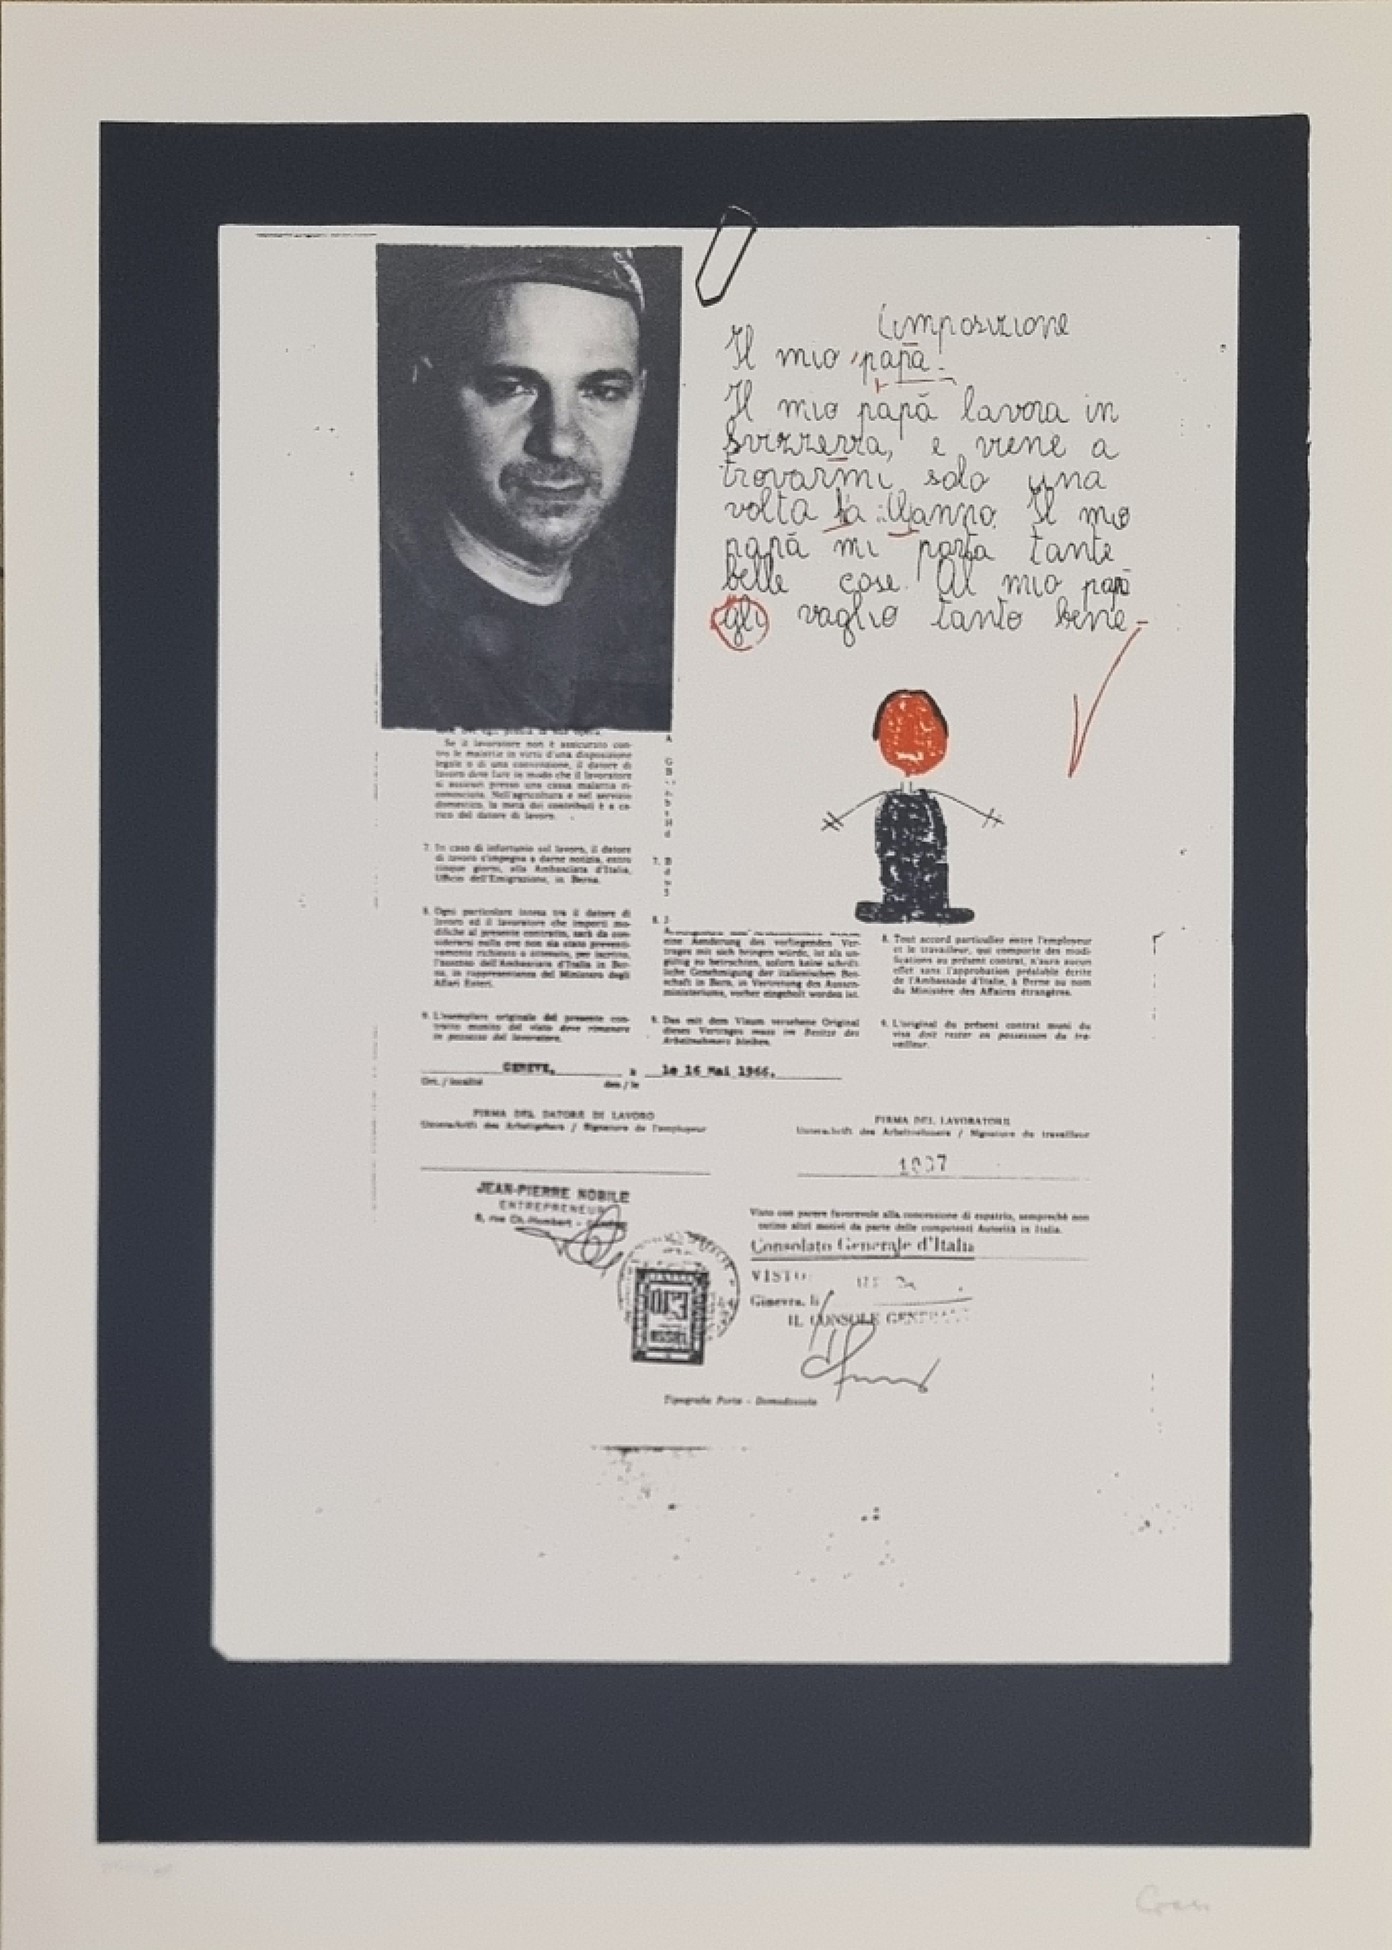 Composizione
Il mio papà!
Il mio papà lavora in
Svizzerra, e viene a
trovarmi solo una
volta la anno. Il mio
papà mi porta tante
belle cose. Al mio papà
gli vaglio tanto bene
Se il lavoratore non è assicurato con-
tro le malattie in virtù d'una disposizione
legale o di una convenzione, il datore di
lavoro deve fare in modo che il lavoratore
si assicuri presso una cassa malattia ri-
conosciuta. Nell'agricoltura e nel servizio
domestico, la metà dei contributi è a ca-
rico del datore di lavoro.
7. In caso di infortunio sul lavoro, il datore
di lavoro s'impegna a darne notizia, entro
cinque giorni, alla Ambasciata d'Italia,
Ufficio dell'Emigrazione, in Berna.
8. Ogni particolare intesa tra il datore di
lavoro ed il lavoratore che importi mo-
difiche al presente contratto, sarà da con-
siderarsi nulla ove non sia stato preventi-
vamente richiesto o ottenuto, per iscritto,
l'assenso dell'Ambasciata d'Italia in Ber-
na, in rappresentanza del Ministero degli
Affari Esteri.
9. L'esemplare originale del presente con-
tratto munito del visto deve rimanere
in possesso del lavoratore.
eine Aenderung des vorliegenden Ver-
trages mit sich bringen würde, ist als un-
gültig zu betrachten, sofern keine schrift-
liche Genehmigung der italienischen Bot-
schaft in Bern, in Vertretung des Aussen-
ministeriums, vorher eingeholt worden ist.
9. Das mit dem Visum versehene Original
dieses Vertrages muss im Besitze des
Arbeitnehmers bleiben.
8. Tout accord particulier entre l'employeur
et le travailleur, qui comporte des modi-
fications au présent contrat, n'aura aucun
effet sans l'approbation préalable écrite
de l'Ambassade d'Italie, à Berne au nom
du Ministère des Affaires étrangères.
9. L'original du présent contrat muni du
visa doit rester en possession du tra-
vailleur.
GENEVE, a le 16 Mai 1966.
Ort. / localité den / le
FIRMA DEL DATORE DI LAVORO
Unterschrift des Arbeitgebers / Signature de l'employeur
FIRMA DEL LAVORATORE
Unterschrift des Arbeitnehmers / Signature du travailleur
JEAN-PIERRE NOBILE
ENTREPRENEUR
8, rue Ch.-Humbert - Genève
Visto con parere favorevole alla concessione di espatrio, sempreché non
ostino altri motivi da parte delle competenti Autorità in Italia.
Consolato Generale d'Italia
VISTO:
Ginevra, li
IL CONSOLE GENERALE
Tipografia Porta - Domodossola